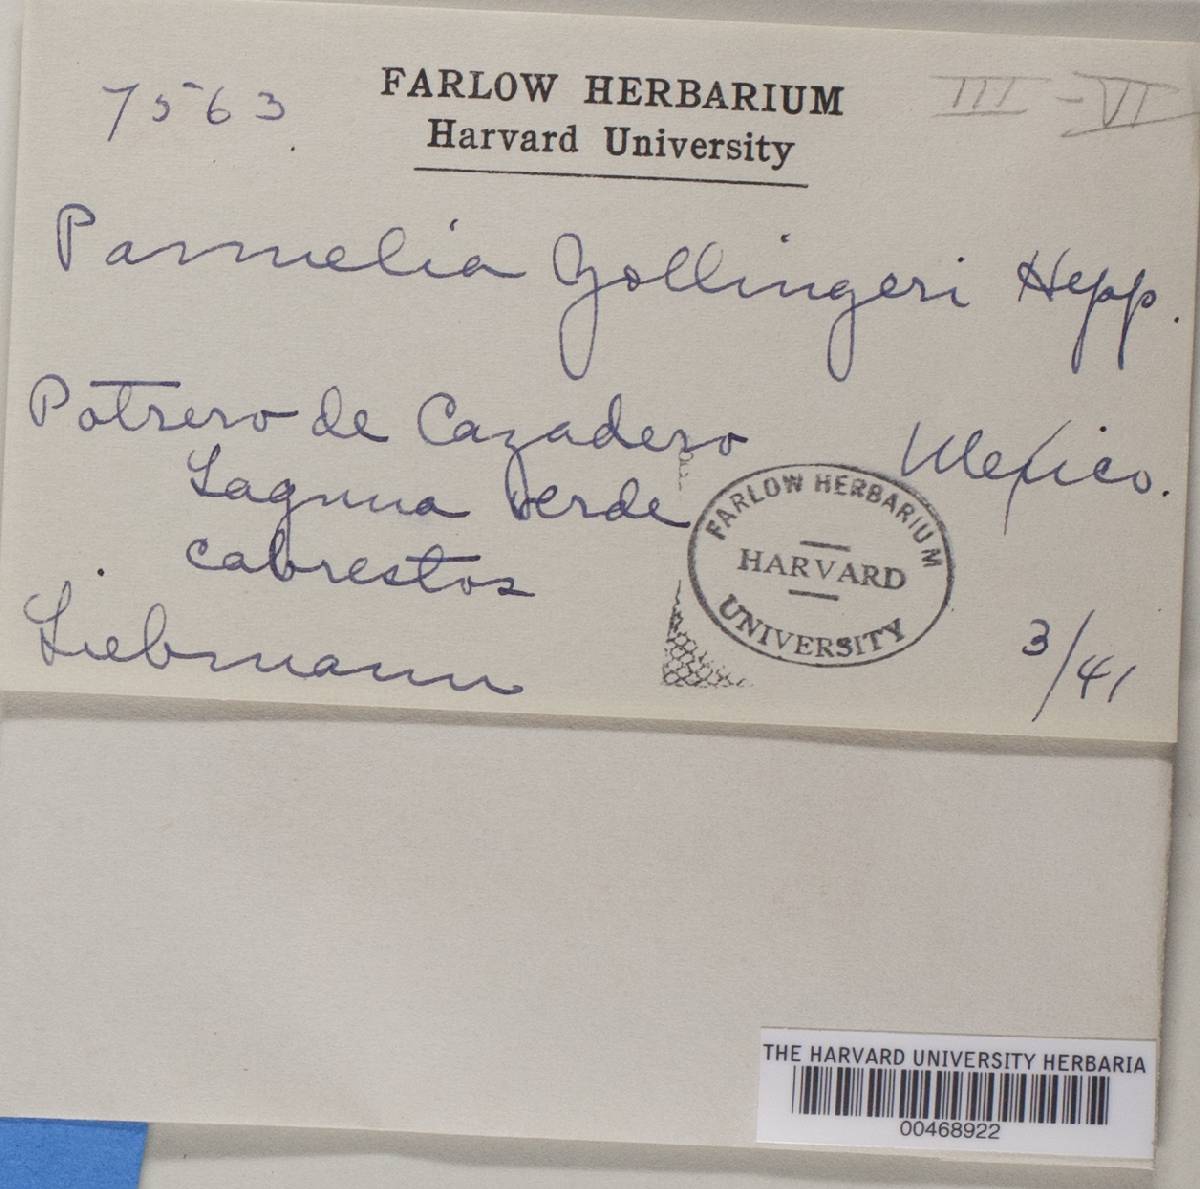 7563.
FARLOW HERBARIUM
Harvard University
III - VI
Parmelia Zollingeri Hepp.
Potrero de Cazadero
Mexico.
Laguna Verde
cabrestos
Liebmann
3/41
FARLOW HERBARIUM
HARVARD
UNIVERSITY
THE HARVARD UNIVERSITY HERBARIA
00468922